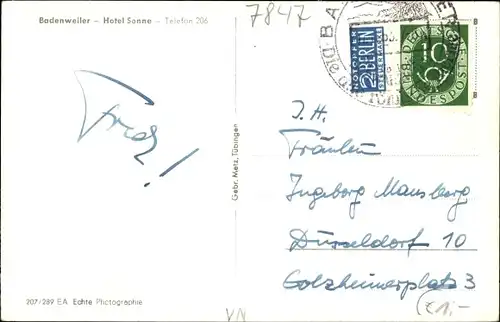 Badenweiler – Hotel Sonne – Telefon 206
7847
NOTOPFER
2 BERLIN
STEUERMARKE
10
DEUTSCHE
BUNDESPOST
Gebr. Metz, Tübingen
I. H.
Fräulein
Ingeborg Mansberg
Düsseldorf 10
Golzheimerplatz 3
207/289 EA Echte Photographie
VN
(€1,-